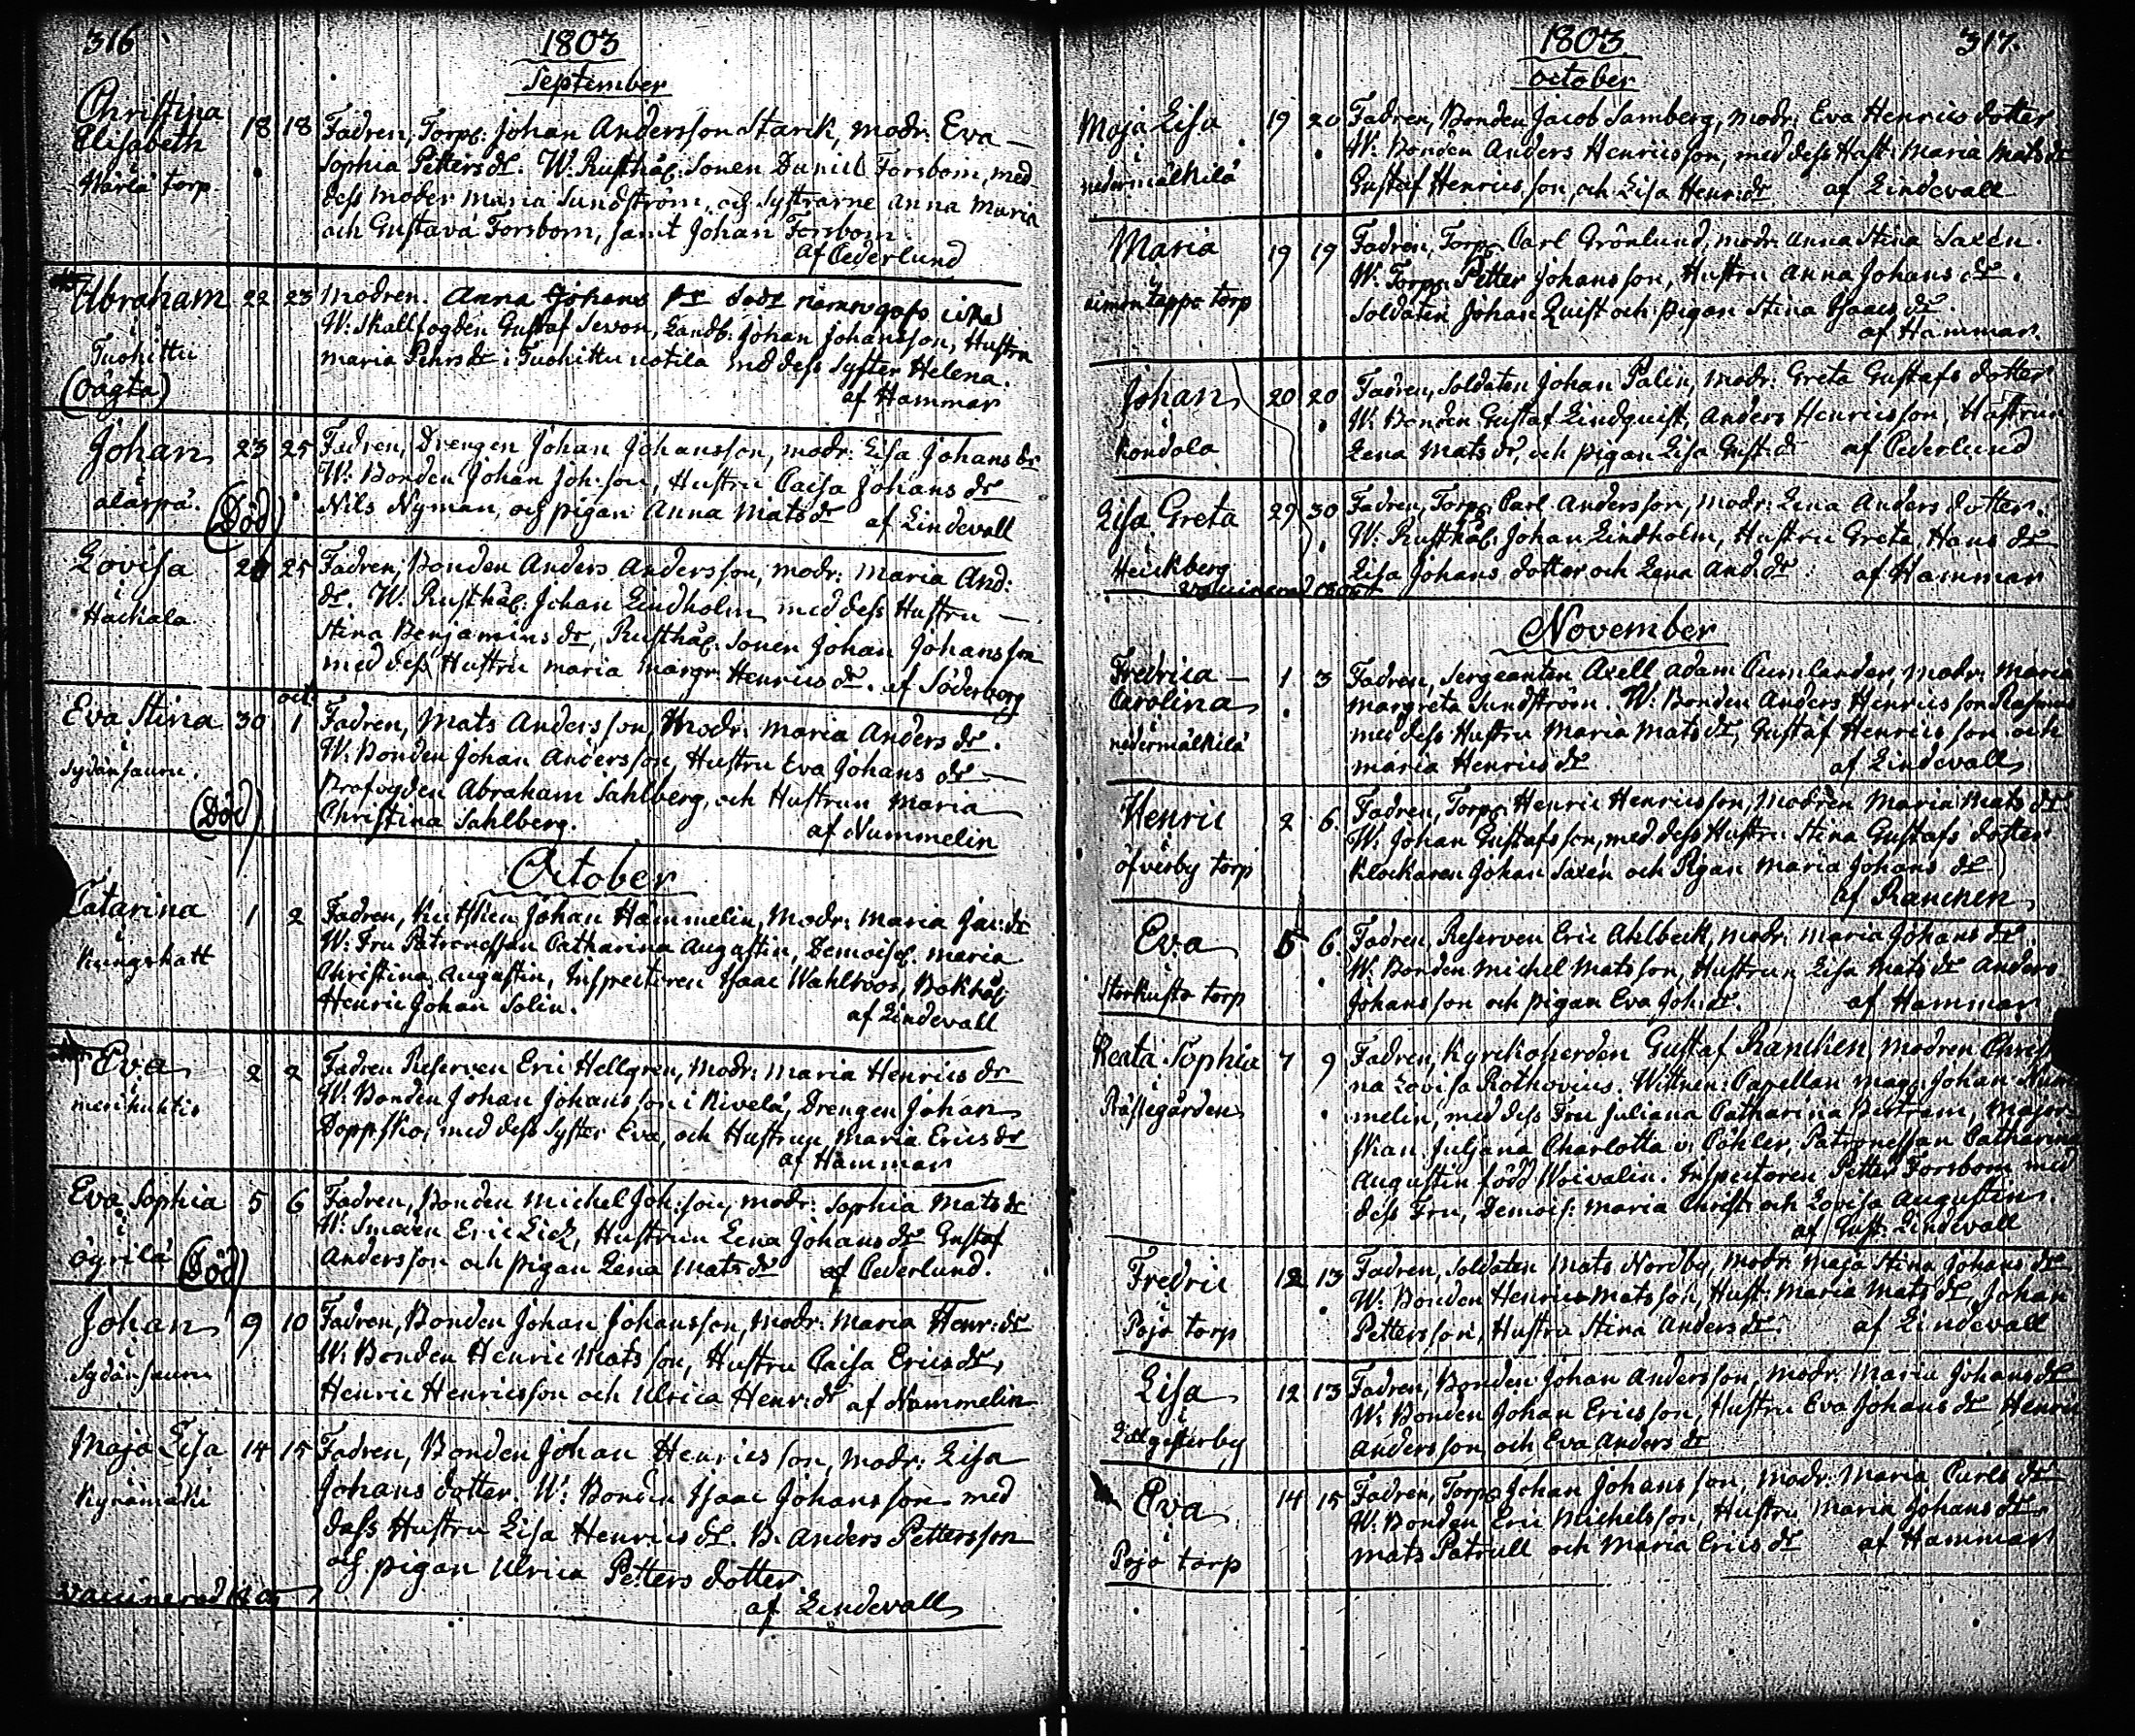 316
1803
September
Christina
Elisabeth
i
Märiä torp.
18 18
Fadren, Torp: Johan Andersson Starck, modr: Eva
Sophia Petters dr. W. Rusthål: Sonen Daniel Forsbom, med
dess moder Maria Sundström, och Systrarne Anna Maria
och Gustava Forsbom, samt Johan Forsbom.
af Cederlund
Abraham
i
Tuohittu
(oägta)
22 23
Modren. Anna Johans dr
W: Skallfogden Gustaf Sevon, Landb: Johan Johansson, Hustru
Maria Pehrs dr i Tuohittu uotila med dess Syster Helena.
af Hammar
Johan
i
alarpä.
(Död)
23 25
Fadren, Drengen Johan Johansson, modr: Lisa Johans dr
W: Bonden Johan Joh:son, Hustru Caisa Johans dr
Nils Nyman, och pigan Anna Mats dr af Lindevall
Lovisa
i
Haikala
24 25
Fadren, Bonden Anders Andersson, modr: Maria And:
dr. W. Rusthål: Johan Lindholm med dess Hustru
Stina Benjamins dr, Rusthål: Sonen Johan Johansson
med dess Hustru Maria Margr: Henrics dr. af Söderborg
Eva Stina
i
Sydänsauru.
(Död)
30 oct: 1
Fadren, Mats Andersson, Modr: Maria Anders dr.
W: Bonden Johan Andersson, Hustru Eva Johans dr
Profogden Abraham Sahlberg, och Hustrun Maria
Christina Sahlberg.
af Nummelin
October
Catarina
i
Kungskatt
1 2
Fadren, Kutsken Johan Hammelin, Modr: Maria Jac: dr
W: Fru Patronessan Catharina Augustin, Demoisel: Maria
Christina Augustin, Inspectoren Isaac Wahlroos, Bokhål:
Henric Johan Solin.
af Lindevall
Eva
i
merikuhtis
2 2
Fadren Reserven Eric Hellgren, Modr: Maria Henrics dr
W: Bonden Johan Johansson i Kivelä, Drengen Johan
Doppsko, med dess Syster Eva, och Hustrun Maria Erics dr
af Hammar
Eva Sophia
i
ögrilä (Död)
5 6
Fadren, Bonden Michel Joh:son, modr: Sophia Mats dr
W: Smeden Eric Lick, Hustrun Lena Johans dr Gustaf
Andersson och pigan Lena Mats dr af Cederlund.
Johan
i
Sydänsauru
9 10
Fadren, Bonden Johan Johansson, Modr: Maria Henr: dr
W: Bonden Henric Matsson, Hustru Caisa Erics dr,
Henric Henricsson och Ulrica Henr: dr af Nummelin
Maja Lisa
i
Kyrämäki
14 15
Fadren, Bonden Johan Henricsson, Modr: Lisa
Johans dotter. W: Bonden Isaac Johansson med
dess Hustru Lisa Henrics dr. B. Anders Pettersson
och pigan Ulrica Petters dotter
af Lindevall
vaccinerad 1805
317.
1803
October
Maja Lisa
i
nedermälkilä
19 20
Fadren, Bonden Jacob Samberg, Modr: Eva Henrics dotter
W: Bonden Anders Henricsson, med dess Hust: Maria Mats dr
Gustaf Henricsson, och Lisa Henr: dr af Lindevall
Maria
i
simontappo torp
19 19
Fadren, Torp: Carl Grönlund, modr: Anna Stina Saxén.
W. Torp: Petter Johansson, Hustru Anna Johans dr.
Soldaten Johan Quist och pigan Stina Isaacs dr.
af Hammar.
Johan
i
Kondola
20 20
Fadren, Soldaten Johan Palin, modr: Greta Gustafs dotter
W: Bonden Gustaf Lindquist, Anders Henricsson, Hustrun
Lena Mats dr, och pigan Lisa Gust: dr af Cederlund
Lisa Greta
i
Heickberg
vaccinerad 1805
29 30
Fadren, Torp: Carl Andersson, modr: Lena Anders dotter.
W. Rusthål: Johan Lindholm, Hustru Greta Hans dr
Lisa Johans dotter och Lena And: dr af Hammar
November
Fredrica
Carolina
i
nedermälkilä
1 3
Fadren, Sergeanten Axell Adam Cumlander, Modr: Maria
Margreta Sundström. W: Bonden Anders Henricsson Rasmus
med dess Hustru Maria Mats dr, Gustaf Henricsson och
Maria Henrics dr af Lindevall
Henric
i
öfverby torp
2 6.
Fadren, Torp: Henric Henricsson, Modren Maria Mats dr.
W. Johan Gustafsson, med dess Hustru Stina Gustafs dotter
Klockaren Johan Saxén och Pigan Maria Johans dr
af Rancken
Eva
i
Storkusto torp
5 6.
Fadren, Reserven Eric Ahlbeck, modr: Maria Johans dr.
W: Bonden Michel Matsson, Hustrun Lisa Mats dr Anders
Johansson och pigan Eva Joh: dr. af Hammar
Beata Sophia
i
Prästegården
7 9
Fadren, Kyrckoherden Gustaf Rancken, Modren Christi
na Lovisa Rothovius. Wittnen: Capellan Mag: Johan Num
melin, med dess Fru Juliana Catharina Bertram, Major
skan Juliana Charlotta v. Cöhler, Patronessan Catharina
Augustin född Woivalin. Inspectoren Petter Forsbom med
dess Fru, Demois: Maria Christ: och Lovisa Augustin.
af Gust: Lindevall
Fredric
i
Pojo torp
12 13
Fadren, Soldaten Mats Nordby, Modr: Maja Stina Johans dr
W: Bonden Henric Matsson, Hust: Maria Mats dr, Johan
Pettersson, Hustru Stina Anders dr. af Lindevall
Lisa
i
Lillgesterby
12 13
Fadren, Bonden Johan Andersson, Modr: Maria Johans dr
W: Bonden Johan Ericsson, Hustru Eva Johans dr Henric
Andersson och Eva Anders dr
Eva
i
Pojo torp
14 15
Fadren, Torp: Johan Johansson, Modr: Maria Carls dr
W. Bonden Eric Michelsson, Hustru Maria Johans dr
Mats Patrull och Maria Erics dr af Hammar